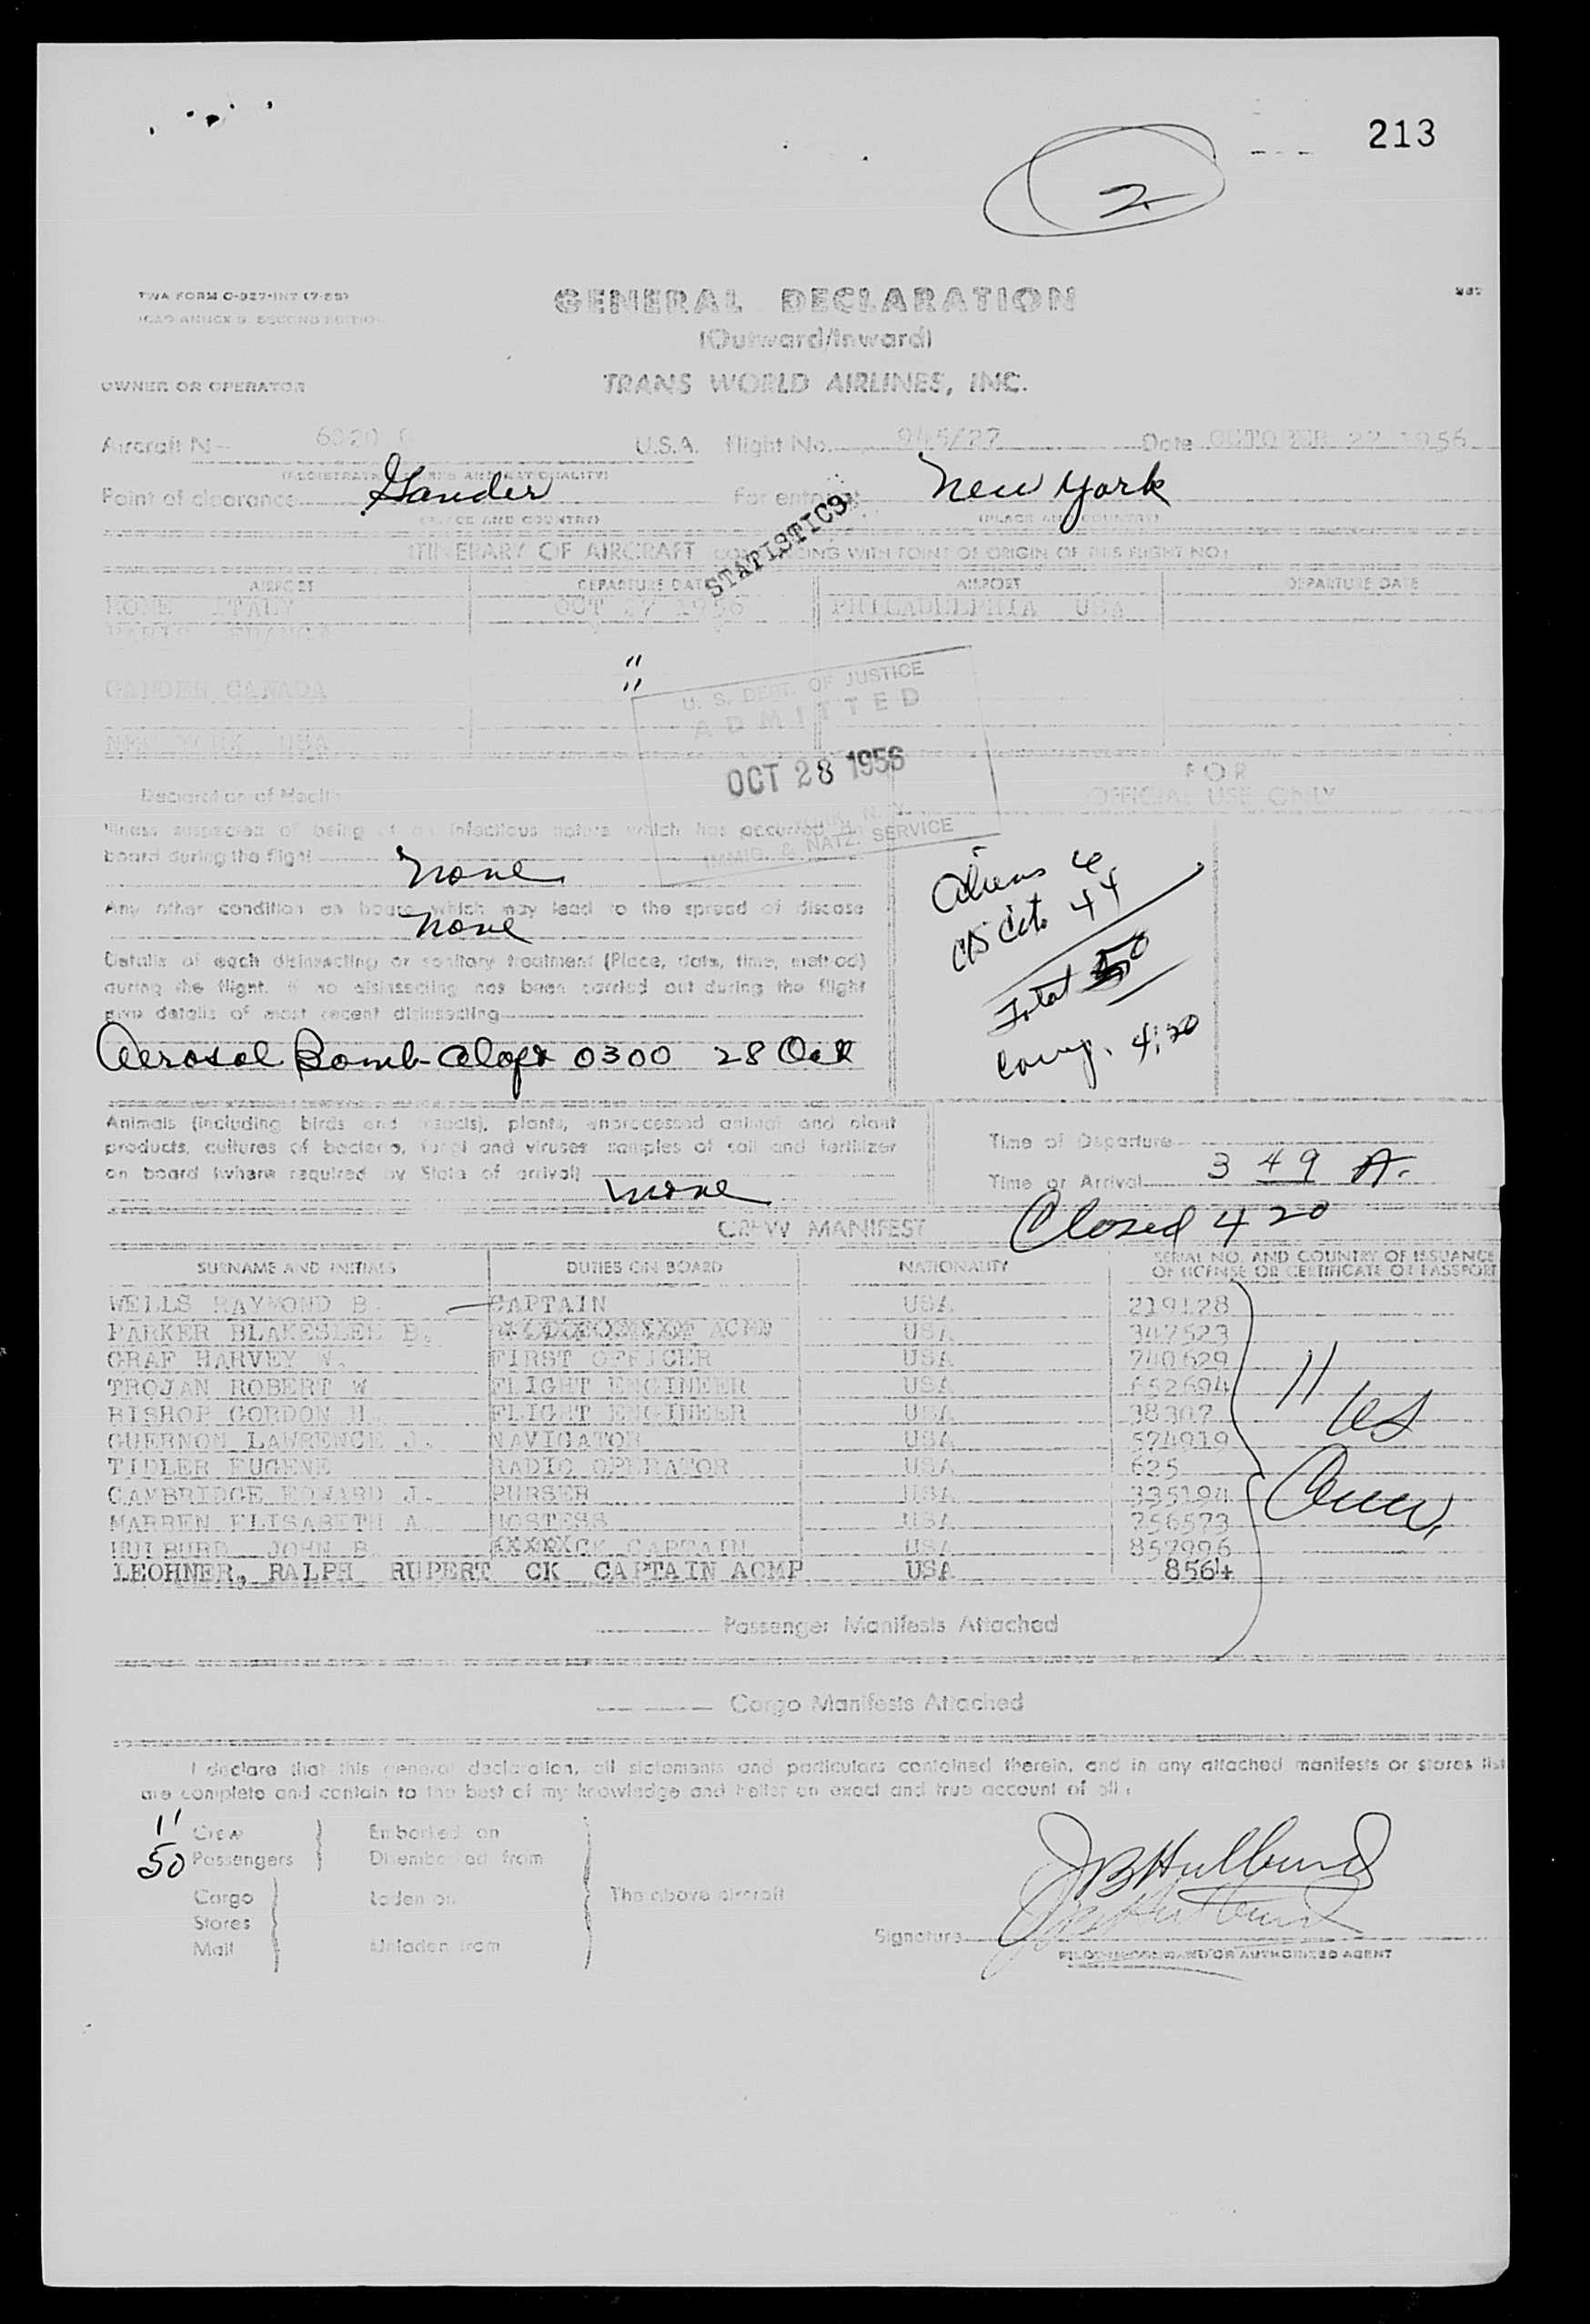 213
2
TWA FORM C-927-INT (7-55)
ICAO ANNEX 9 SECOND EDITION
GENERAL DECLARATION
(Outward/Inward)
OWNER OR OPERATOR
TRANS WORLD AIRLINES, INC.
Aircraft N 6020 C U.S.A. Flight No. 945/27 Date OCTOBER 27 1956
Point of clearance Gander For entry at New York
(PLACE AND COUNTRY) (PLACE AND COUNTRY)
STATISTICS
ITINERARY OF AIRCRAFT (COMMENCING WITH POINT OF ORIGIN OF THIS FLIGHT NO.)
AIRPORT DEPARTURE DATE AIRPORT DEPARTURE DATE
ROME ITALY OCT 27 1956 PHILADELPHIA USA
PARIS FRANCE
"
GANDER CANADA "
NEW YORK USA
U. S. DEPT. OF JUSTICE
ADMITTED
OCT 28 1956
N. Y.
IMMIG. & NATZ. SERVICE
Declaration of Health
FOR
OFFICIAL USE ONLY
Illness suspected of being of an infectious nature which has occurred on
board during the flight
None
Any other condition on board which may lead to the spread of disease
None
Details of each disinsecting or sanitary treatment (Place, date, time, method)
during the flight. If no disinsecting has been carried out during the flight
give details of most recent disinsecting
Aerosol Bomb- Aloft 0300 28 Oct
Aliens 6
US Cit. 44
Total 50
Comp. 4:20
Animals (including birds and insects), plants, unprocessed animal and plant
products, cultures of bacteria, fungi and viruses samples of soil and fertilizer
on board (where required by State of arrival)
None
Time of Departure
Time of Arrival 3 49 A.
Closed 4 20
CREW MANIFEST
SURNAME AND INITIALS DUTIES ON BOARD NATIONALITY SERIAL NO. AND COUNTRY OF ISSUANCE
OF LICENSE OR CERTIFICATE OR PASSPORT
WELLS RAYMOND B. CAPTAIN USA 219128
PARKER BLAKESLEE B. ACMP USA 347523
GRAF HARVEY W. FIRST OFFICER USA 740629
TROJAN ROBERT W FLIGHT ENGINEER USA 652694
BISHOP GORDON H. FLIGHT ENGINEER USA 38307
GUERNON LAWRENCE J. NAVIGATOR USA 574919
TIDLER EUGENE RADIO OPERATOR USA 625
CAMBRIDGE EDWARD J. PURSER USA 335194
MARREN ELISABETH A HOSTESS USA 756573
HULBURD JOHN B. XXXXXCK CAPTAIN USA 857996
LEOHNER, RALPH RUPERT CK CAPTAIN ACMP USA 8564
11 US
Crew
Passenger Manifests Attached
Cargo Manifests Attached
I declare that this general declaration, all statements and particulars contained therein, and in any attached manifests or stores list
are complete and contain to the best of my knowledge and belief an exact and true account of all :
11 Crew Embarked on
50 Passengers Disembarked from
Cargo Laden on The above aircraft
Stores
Mail Unladen from
JBHulburd
Signature
PILOT-IN-COMMAND OR AUTHORIZED AGENT